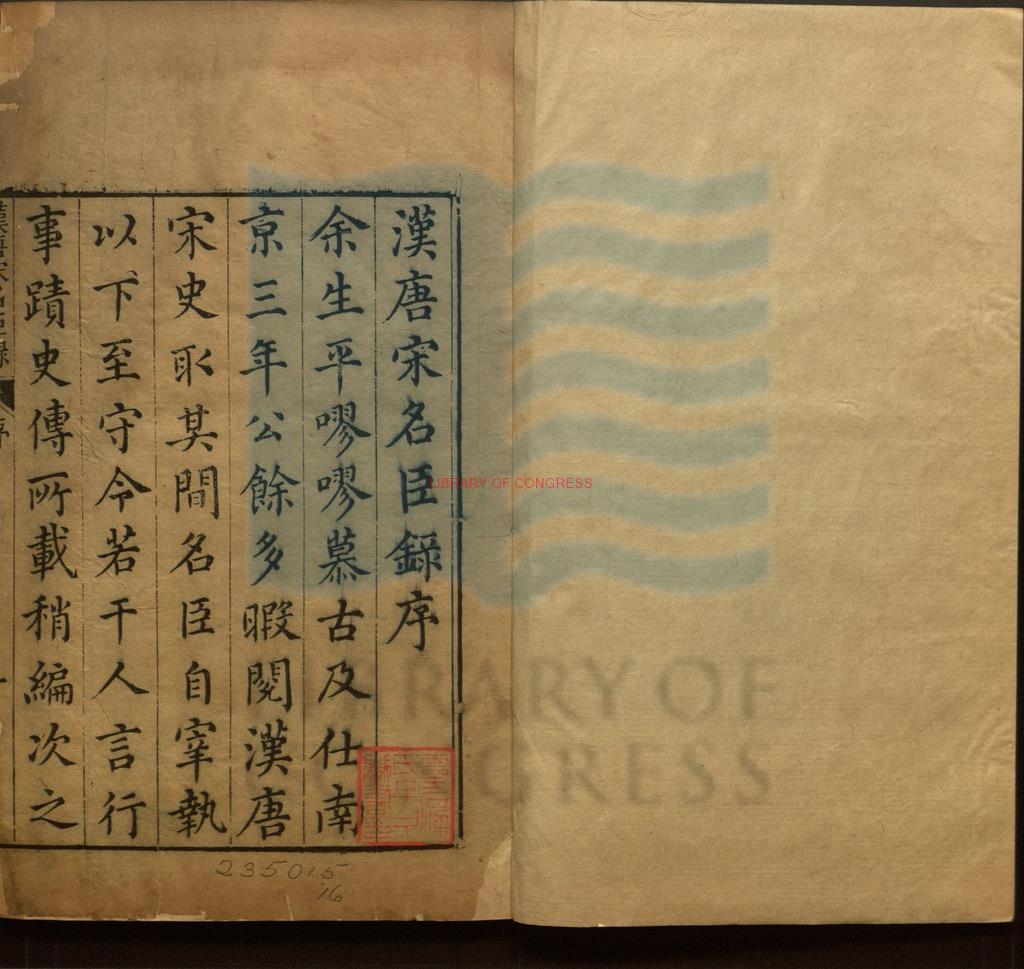 漢唐宋名臣錄序
余生平嘐嘐慕古及仕南
京三年公餘多暇閱漢唐
宋史取其間名臣自宰執
以下至守令若干人言行
事蹟史傳所載稍編次之
235015
16
LIBRARY OF CONGRESS
LIBRARY OF
CONGRESS